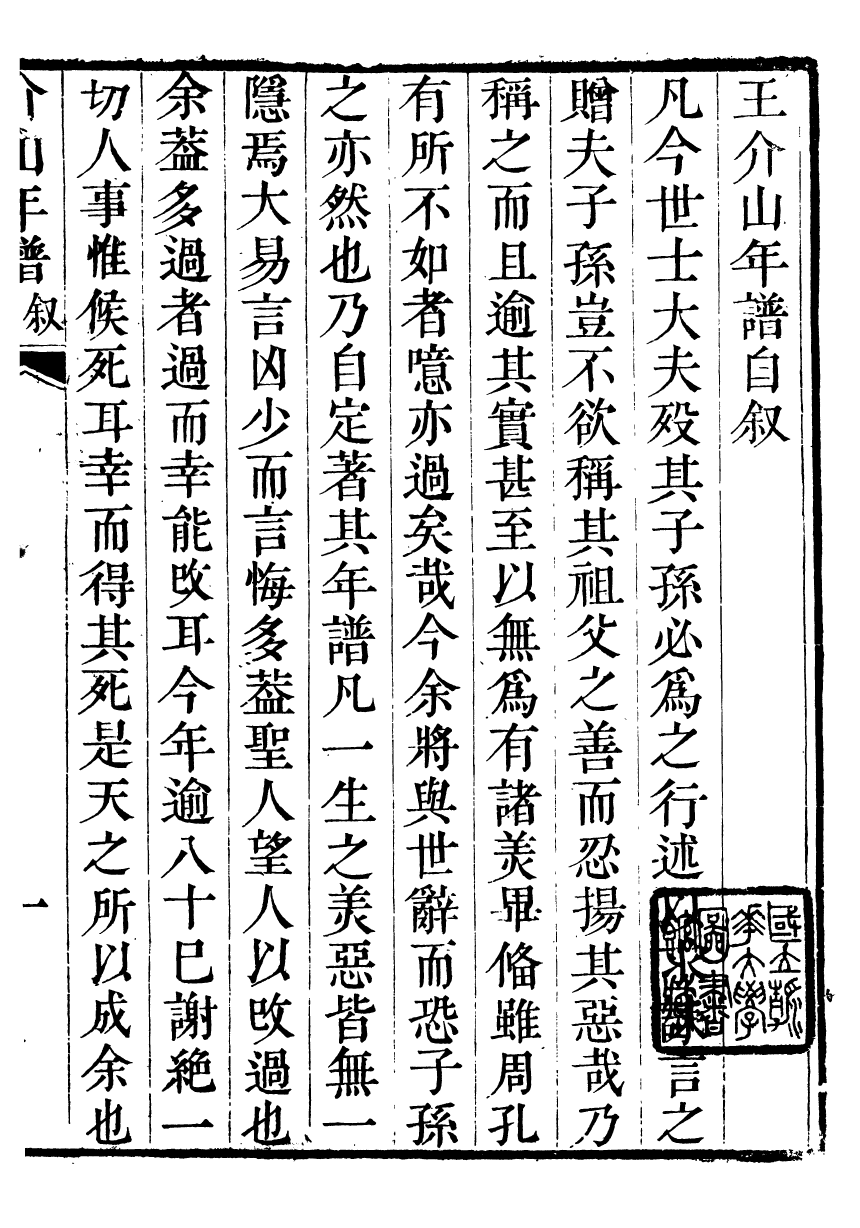 王介山年譜自叙
凡今世士大夫歿其子孫必爲之行述言之
贈夫子孫豈不欲稱其祖父之善而忍揚其惡哉乃
稱之而且逾其實甚至以無爲有諸美畢俻雖周孔
有所不如者噫亦過矣哉今余將與世辭而恐子孫
之亦然也乃自定著其年譜凡一生之美惡皆無一
隱焉大易言凶少而言悔多葢聖人望人以改過也
余葢多過者過而幸能改耳今年逾八十巳謝絶一
切人事惟候死耳幸而得其死是天之所以成余也
介山年譜 叙 一
國立清
華大學
圖書